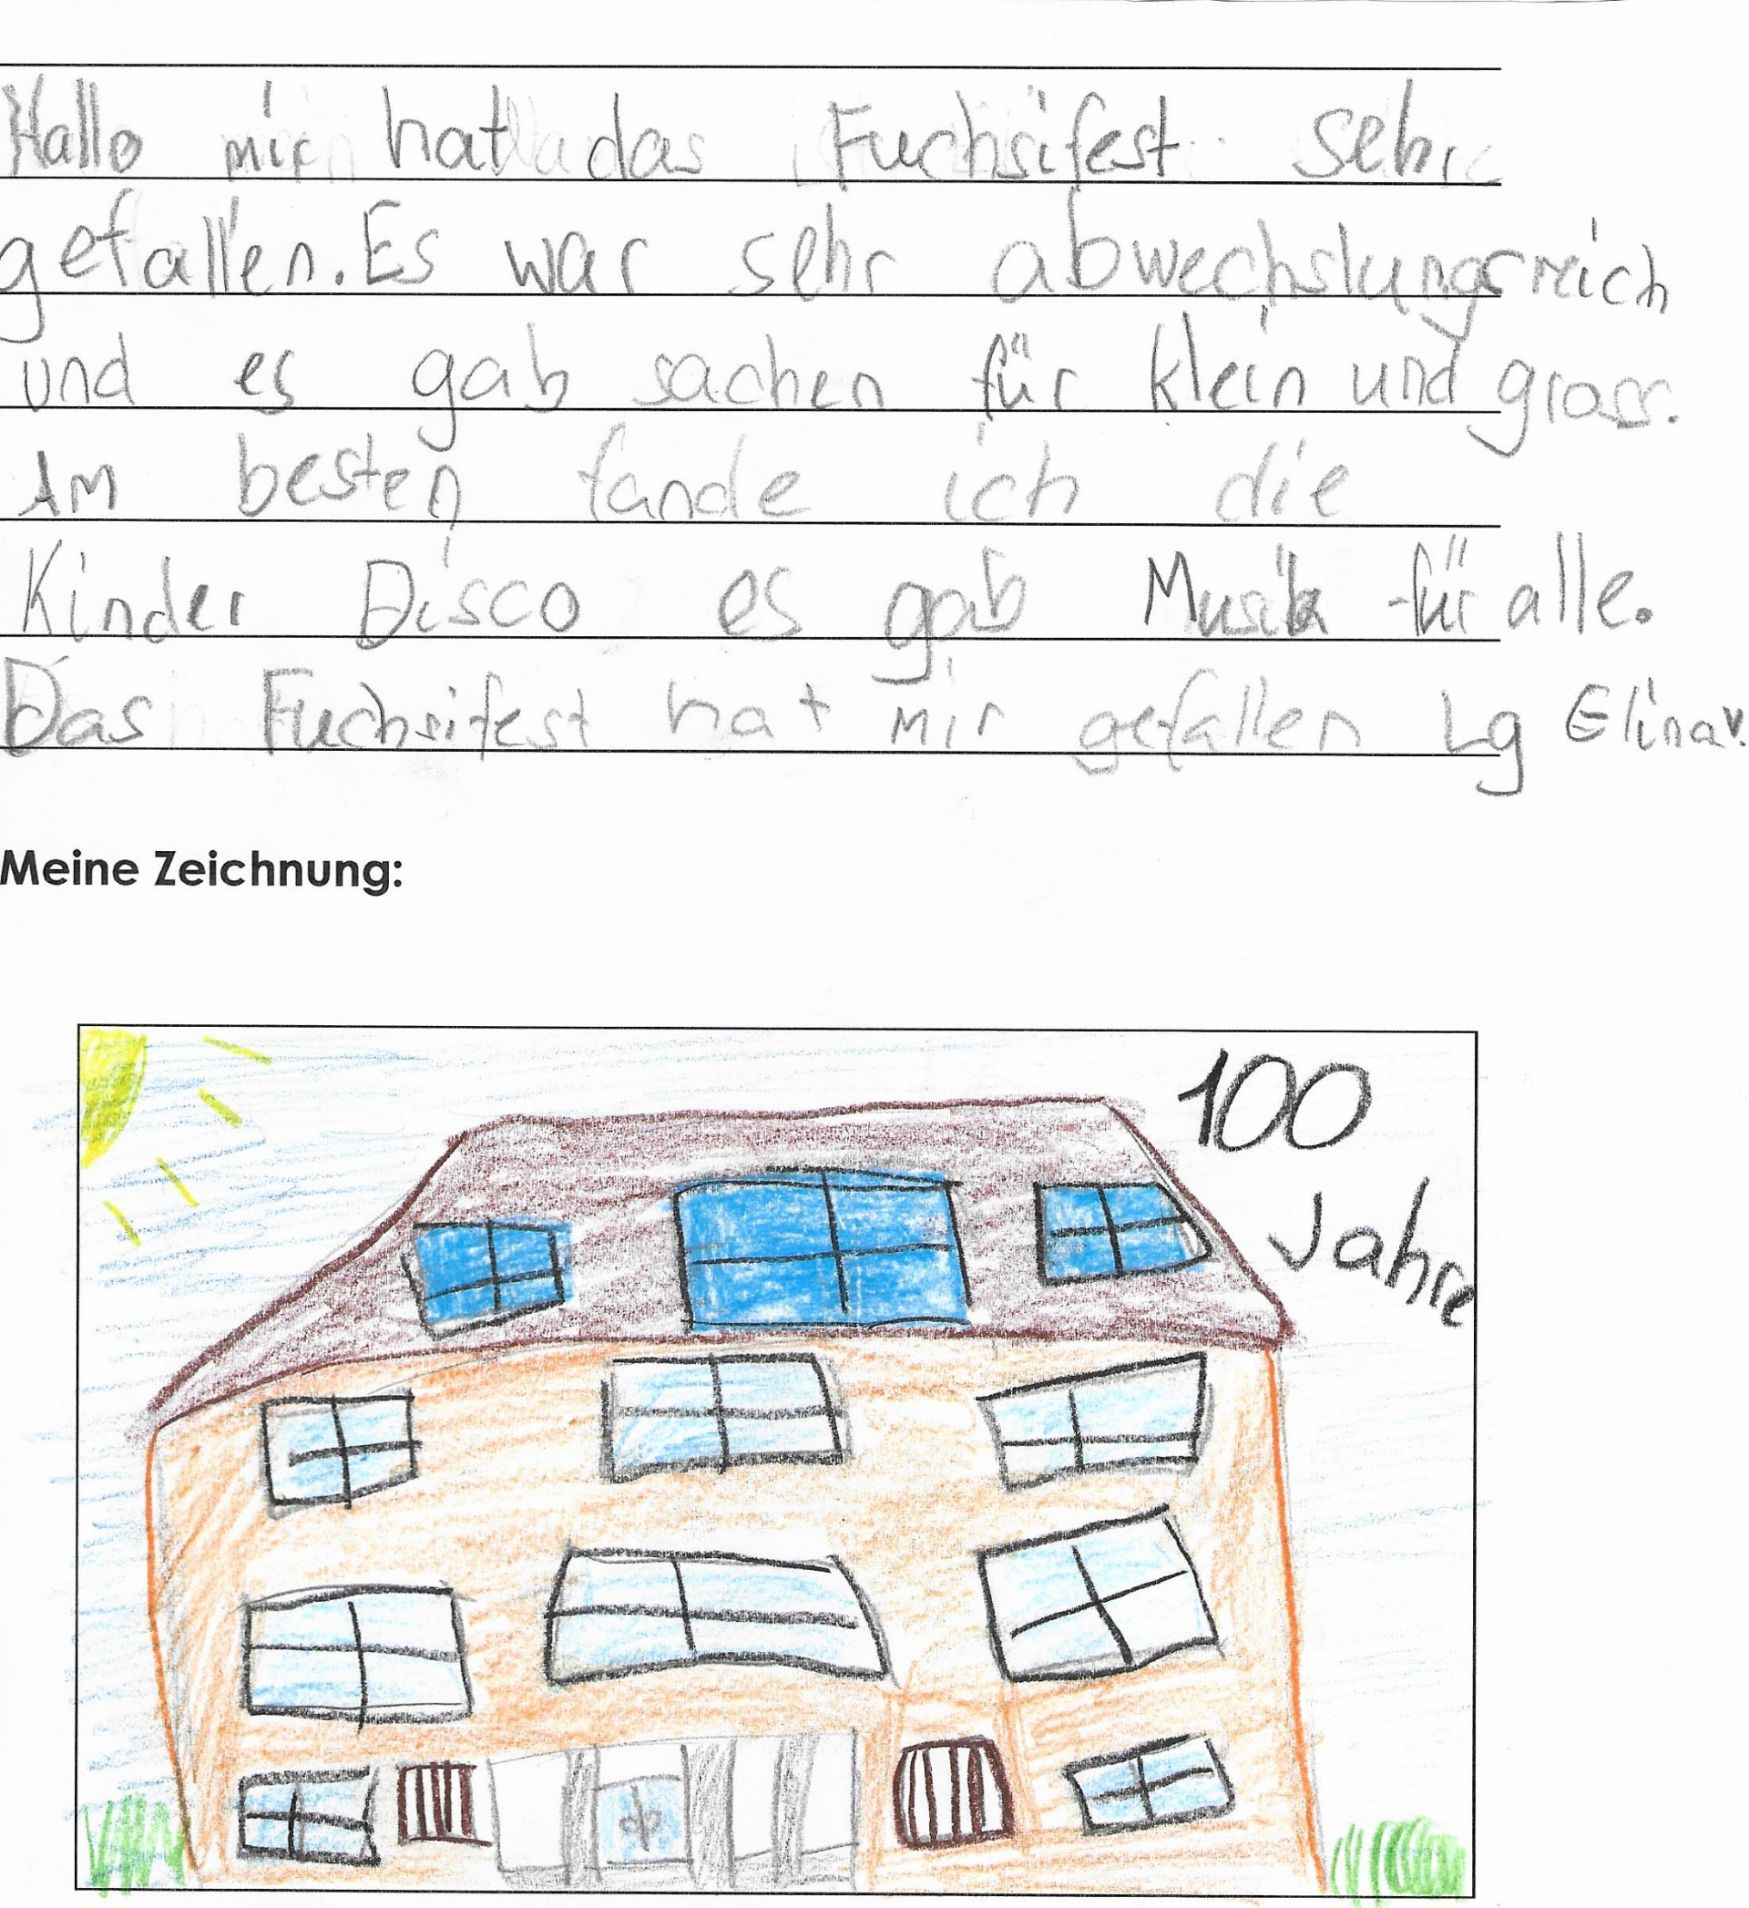 Hallo mir hat das Fuchsifest sehr
gefallen. Es war sehr abwechslungsreich
und es gab sachen für klein und gross.
Am besten fande ich die
Kinder Disco es gab Musik für alle.
Das Fuchsifest hat mir gefallen Lg Elina v.
Meine Zeichnung:
100
Jahre